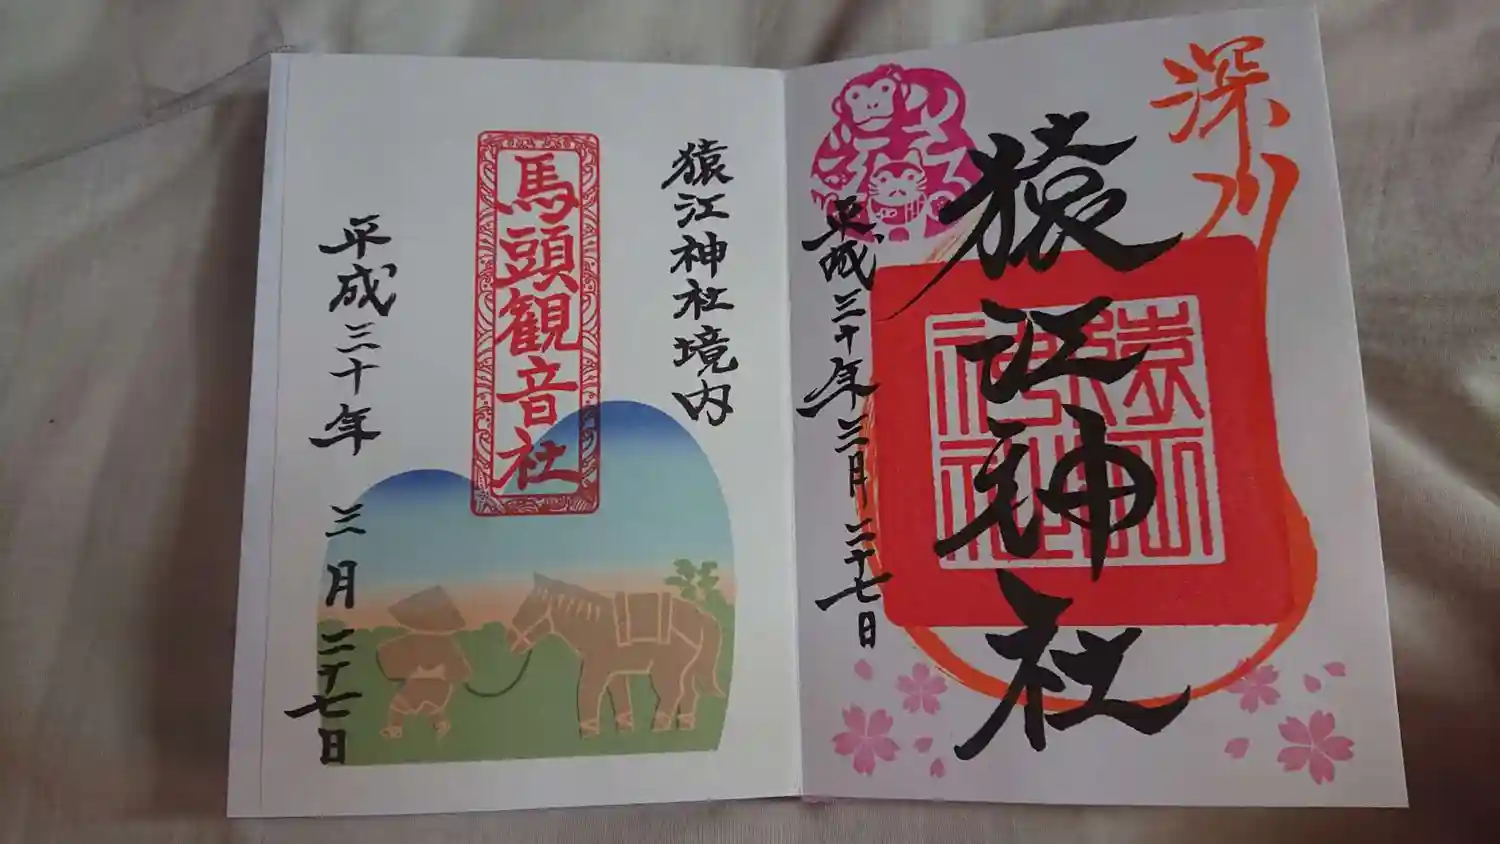 深川
猿江神社
平成三十年三月二十七日
猿江神社境内
馬頭観音社
平成三十年 三月 二十七日